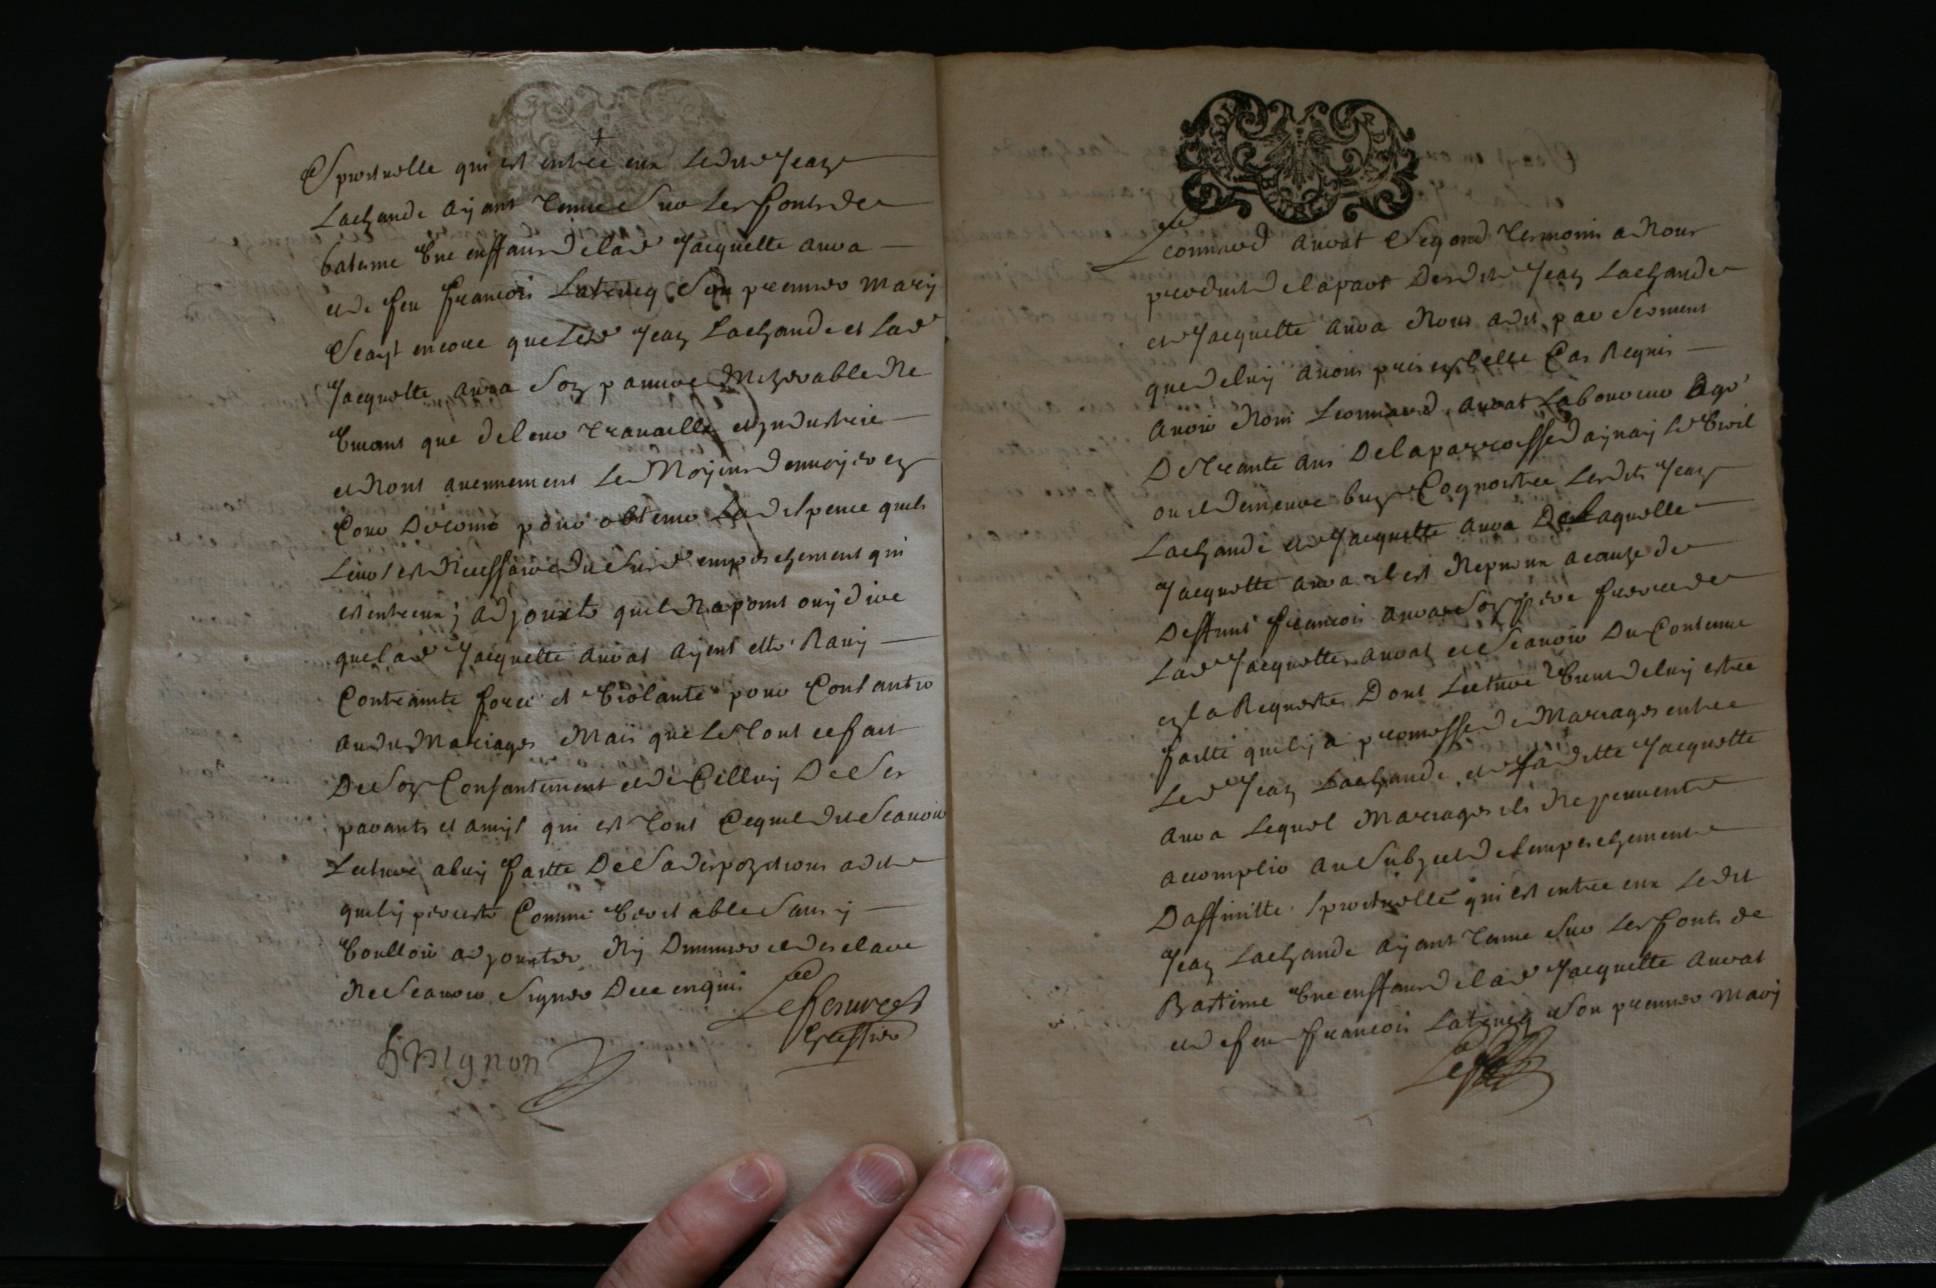 Spirituelle qui est entree eux Ledit Jean
Lachande ayant tenue Sur Les fonts de
bateme Une enffans de lad Jacquette auva
et de feu francois Son premier mary
Scayt encore que led Jean Lachande et Lad
Jacquette auva Son pauvre Mizerable Ne
Vivant que de leur travaille et zndustrie
et Nont aucunement Le Moyen denvoyer en
Cour de Rome pour obtenir La dispence quil
Leur est Necessaire du Susd empeschement qui
est entre eux, adjouxte quil Na point ouy dire
que lad Jacquette auvat Ayent este Ravy
Contrainte force et Violante pour Consantir
audit Mariages Mais que Le tout ce fait
De Son Consantement et de Celluy De Ses
parants et amys qui est tout Cequil dit Scavoir
Lecture a luy faitte De Sa depozitions a dit
quil y persiste Comme Veritable Sans y
Voulloir adjouxter Ny Diminuer et desclare
Ne Scavoir Signer De ce enquis
Lefebure
Greffier
Pignon
Leonnard auvat Segond tesmoins a Nous
produit de la part Desdits Jean Lachande
et Jacquette auva Nous a dit par Serment
que de luy avons pris en telle Cas Requis
avoir Nom Leonnard auvat Laboureur Agé
De trante ans De la parroisse daynay Le Vieil
ou il demeure bien Cognoistre Lesdits Jean
Lachande et Jacquette auva De Laquelle
Jacquette auva il est Nepveux a cauze de
Deffunt francois auva Son pere frere de
Lad Jacquette auvat et Scavoir Du Contenue
en la Requeste Dont Lecture Vient de luy estre
faitte quil y a promesse de Mariages entre
Led Jean Lachande et Ladette Jacquette
auva Lequel Mariages ils Ne peuvent
accomplir au Subject de Lempeschement
Daffinitte Spirituelle qui est entre eux Ledit
Jean Lachande ayant tenue Sur Les fonts de
Bastime Une enffans de lad Jacquette auvat
et de feu francois Son premier Mary